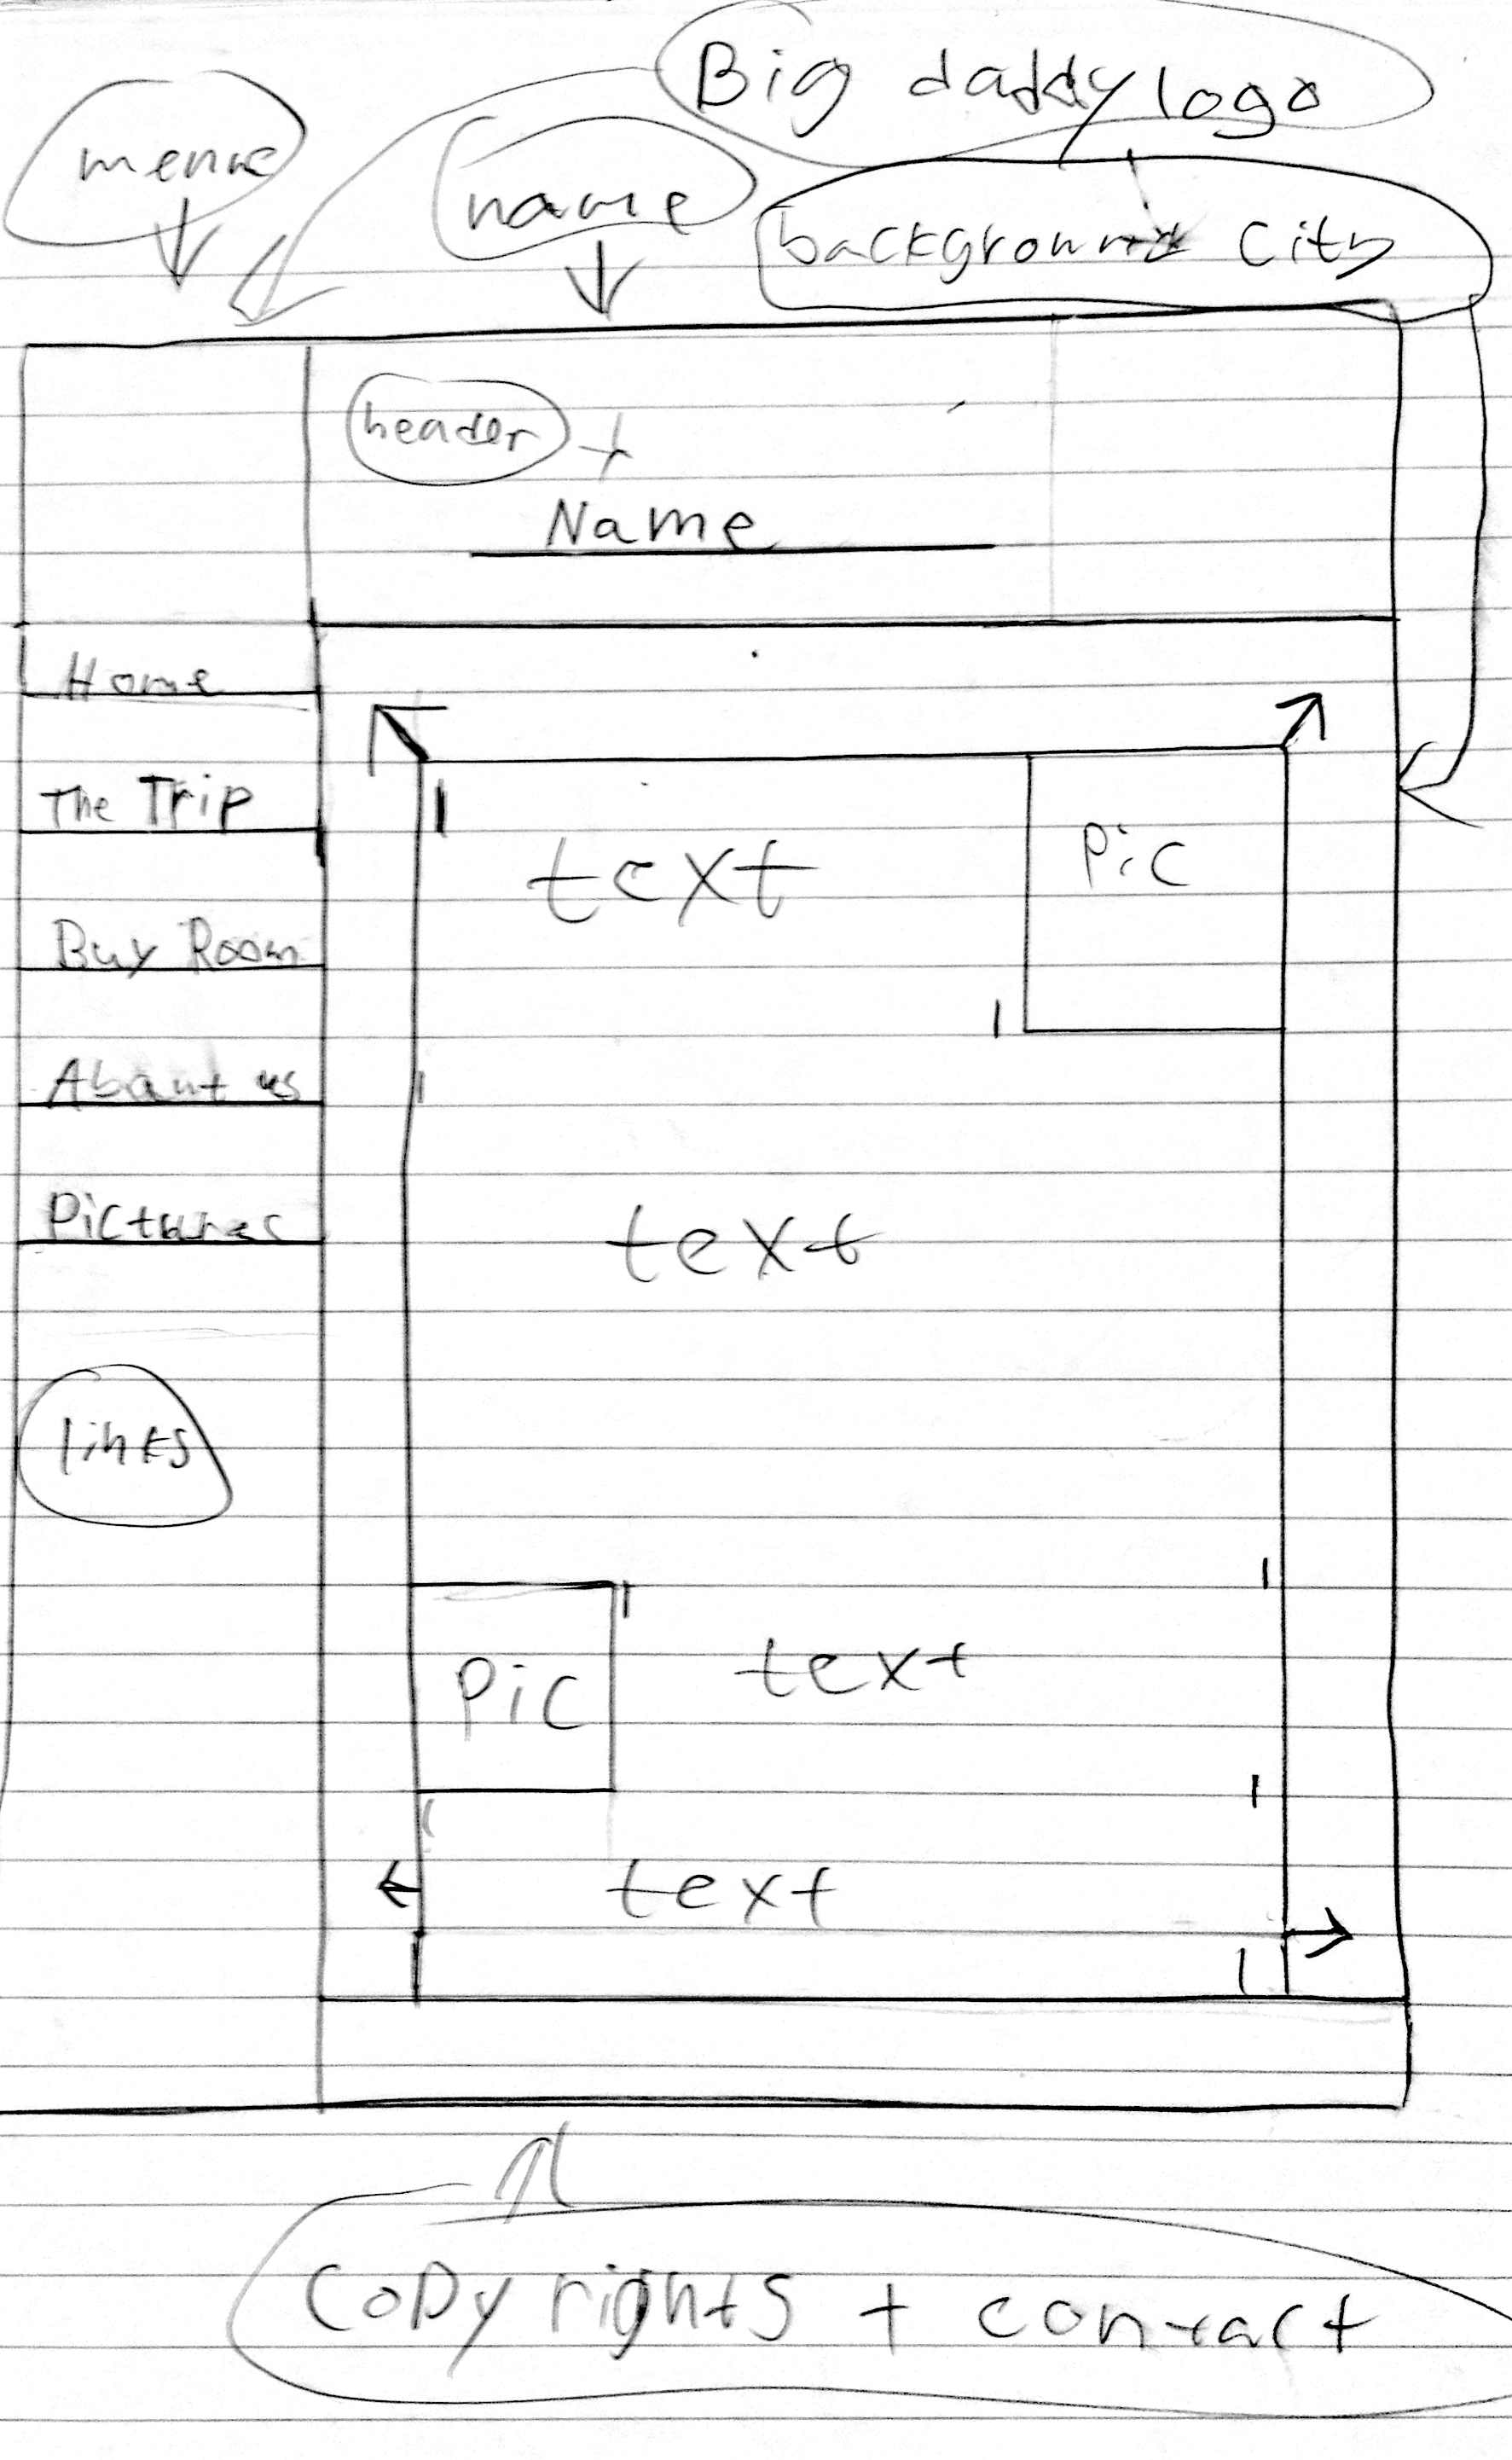 Big daddy logo
menu
name
background City
header +
Name
Home
The Trip
text
Pic
Buy Room
About us
Pictures
text
links
Pic
text
text
Copy rights + contact